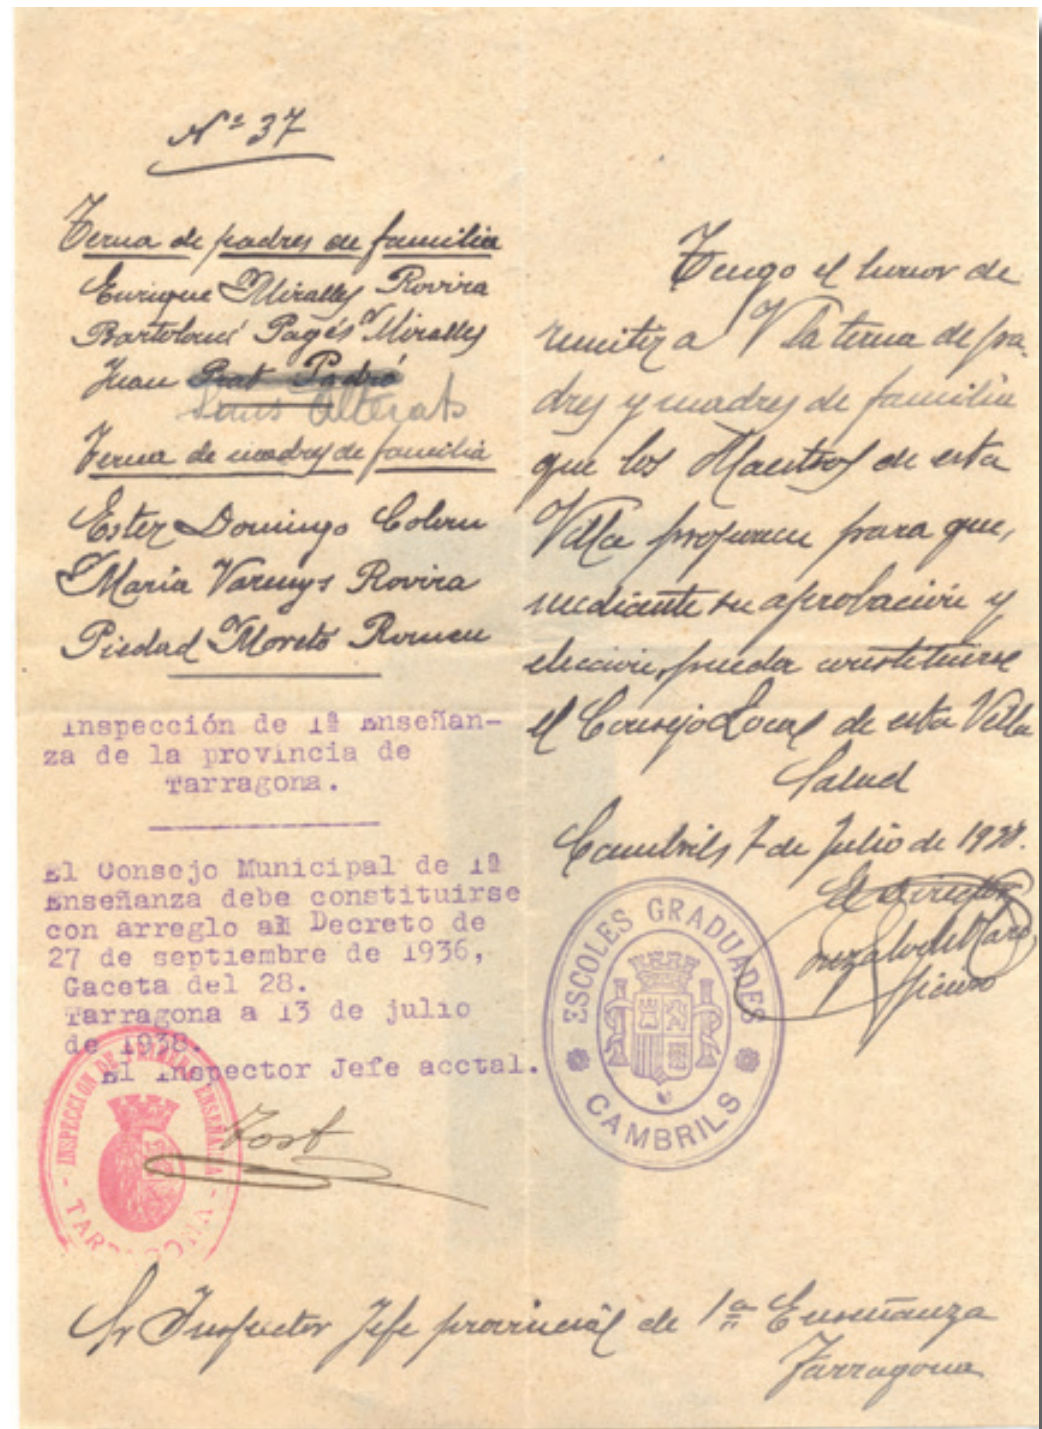 Nº 37
Terna de padres de familia
Enrique Miralles Rovira
Bartolomé Pagés Miralles
Juan Prat Padró
Lluis Alterats
Terna de madres de familia
Ester Domingo Colom
María Varenys Rovira
Piedad Moretó Romeu
Inspección de 1ª Enseñan-
za de la provincia de
Tarragona.
El Consejo Municipal de 1ª
Enseñanza debe constituirse
con arreglo al Decreto de
27 de septiembre de 1936,
Gaceta del 28.
Tarragona a 13 de julio
de 1938.
El Inspector Jefe acctal.
Tost
INSPECCION DE PRIMERA ENSEÑANZA
TARRAGONA
Tengo el honor de
remitir a V la terna de pa-
dres y madres de familia
que los Maestros de esta
Villa proponen para que,
mediante su aprobación y
elección, pueda constituirse
el Consejo Local de esta Villa
Salud
Cambrils 7 de Julio de 1938.
El Director
ESCOLES GRADUADES
CAMBRILS
Sr Inspector Jefe provincial de 1ª Enseñanza
Tarragona